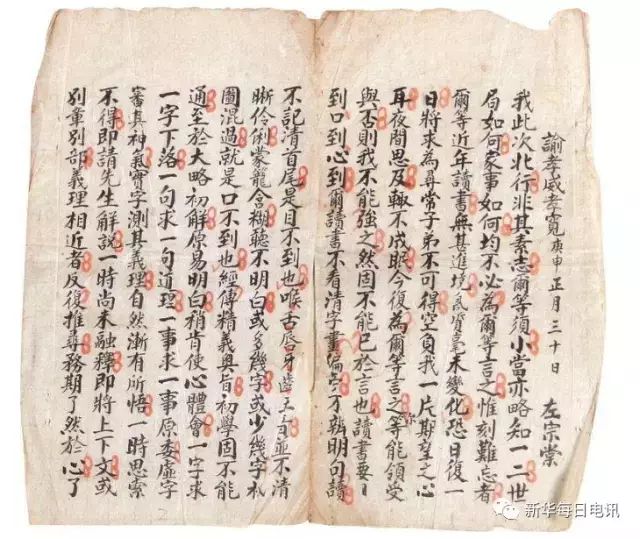 諭孝威孝寬庚申正月三十日 左宗棠
我此次北行非其素志爾等須小當亦略知一二世
局如何家事如何均不必為爾等言之惟刻難忘者
爾等近年讀書無甚進境氣質毫未變化恐日復一
日將求為尋常子弟不可得空負我一片期望之心
耳夜間思及輒不成眠今復為爾等言之爾等能領受
與否則我不能強之然固不能已於言也讀書要目
到口到心到爾讀書不看清字畫偏旁不辨明句讀
不記清首尾是目不到也喉舌唇牙齒五音並不清
晰伶俐蒙籠含糊聽不明白或多幾字或少幾字
圖混過就是口不到也經傳精義奧旨初學固不能
通至於大略初解原易明白稍肯使心體會一字求
一字下落一句求一句道理一事求一事原委虛字
審其神氣實字測其義理自然漸有所悟一時思索
不得即請先生解說一時尚未融釋即將上下文或
別章別部義理相近者反復推尋務期了然於心了
新华每日电讯